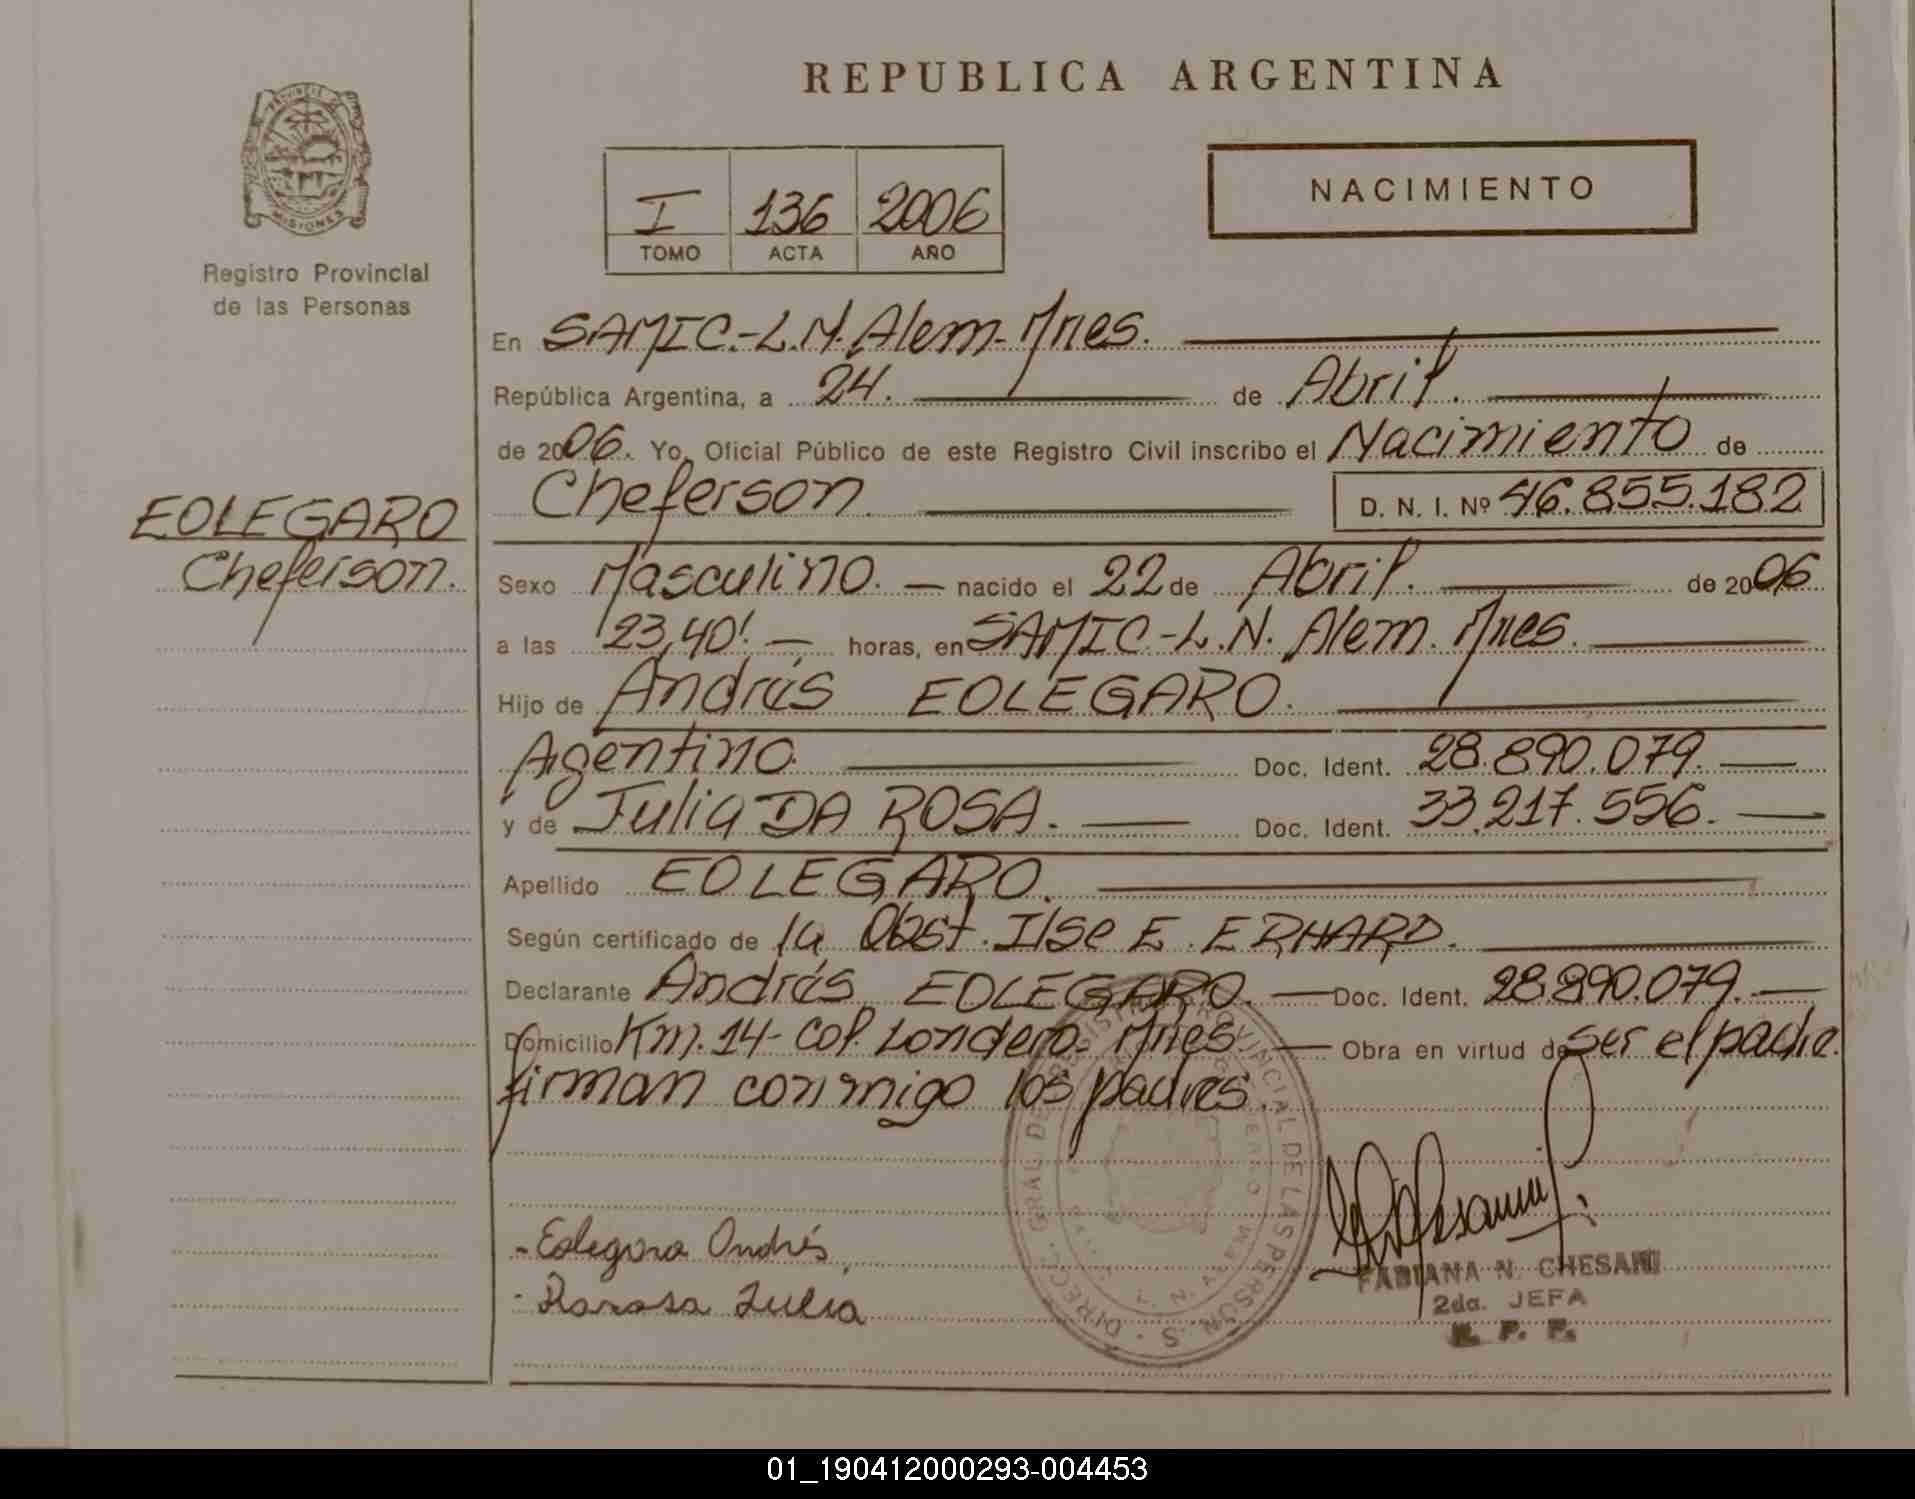 REPUBLICA ARGENTINA
PROVINCIA DE
MISIONES
Registro Provincial
de las Personas
I 136 2006
TOMO ACTA AÑO
NACIMIENTO
EOLEGARO
Cheferson.
En SAMIC.-L.N. Alem- Mnes.
República Argentina, a 24. de Abril.
de 2006. Yo, Oficial Público de este Registro Civil inscribo el Nacimiento de
Cheferson. D. N. I. Nº 46.855.182
Sexo Masculino. nacido el 22 de Abril. de 2006
a las 23,40'. horas, en SAMIC-L.N. Alem. Mnes.
Hijo de Andrés EOLEGARO.
Agentino. Doc. Ident. 28.890.079.
y de Julia DA ROSA. Doc. Ident. 33.217.556.
Apellido EOLEGARO.
Según certificado de la Obst. Ilse E. ERHARD.
Declarante Andrés EOLEGARO. Doc. Ident. 28.890.079.
Domicilio Km. 14- Col. Londero- Mnes Obra en virtud de ser el padre.
firman conmigo los padres.
- Eolegaro Andrés
- Darosa Julia
DIRECC. GRAL. DEL REGISTRO PROVINCIAL DE LAS PERSONAS
L. N. ALEM
FABIANA N. CHESANI
2da. JEFA
R. P. P.
01_190412000293-004453